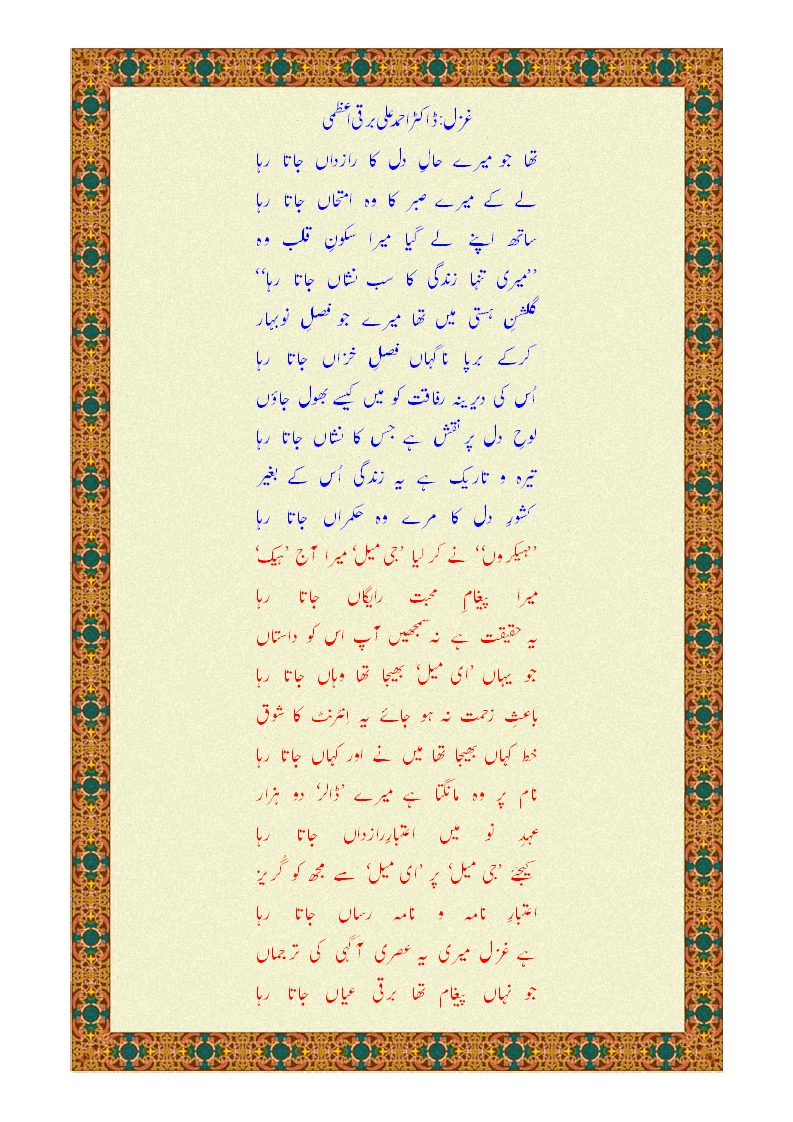 غزل: ڈاکٹر احمد علی برقی اعظمی
تھا جو میرے حالِ دل کا رازداں جاتا رہا
لے کے میرے صبر کا وہ امتحاں جاتا رہا
ساتھ اپنے لے گیا میرا سکونِ قلب وہ
’’میری تنہا زندگی کا سب نشاں جاتا رہا‘‘
گلشنِ ہستی میں تھا میرے جو فصلِ نوبہار
کرکے برپا ناگہاں فصلِ خزاں جاتا رہا
اُس کی دیرینہ رفاقت کو میں کیسے بھول جاؤں
لوحِ دل پر نقش ہے جس کا نشاں جاتا رہا
تیرہ و تاریک ہے یہ زندگی اُس کے بغیر
کشورِ دل کا مرے وہ حکمراں جاتا رہا
’’ہیکروں‘‘ نے کر لیا ’جی میل‘ میرا آج ’ہیک‘
میرا پیغامِ محبت رایگاں جاتا رہا
یہ حقیقت ہے نہ سمجھیں آپ اس کو داستاں
جو یہاں ’ای میل‘ بھیجا تھا وہاں جاتا رہا
باعث زحمت نہ ہو جائے یہ انٹرنٹ کا شوق
خط کہاں بھیجا تھا میں نے اور کہاں جاتا رہا
نام پر وہ مانگتا ہے میرے ’ڈالر‘ دو ہزار
عہدِ نو میں اعتبارِ رازداں جاتا رہا
کیجئے ’جی میل‘ پر ’ای میل‘ سے مجھ کو گُریز
اعتبارِ نامہ و نامہ رساں جاتا رہا
ہے غزل میری یہ عصری آگہی کی ترجماں
جو نہاں پیغام تھا برقی عیاں جاتا رہا